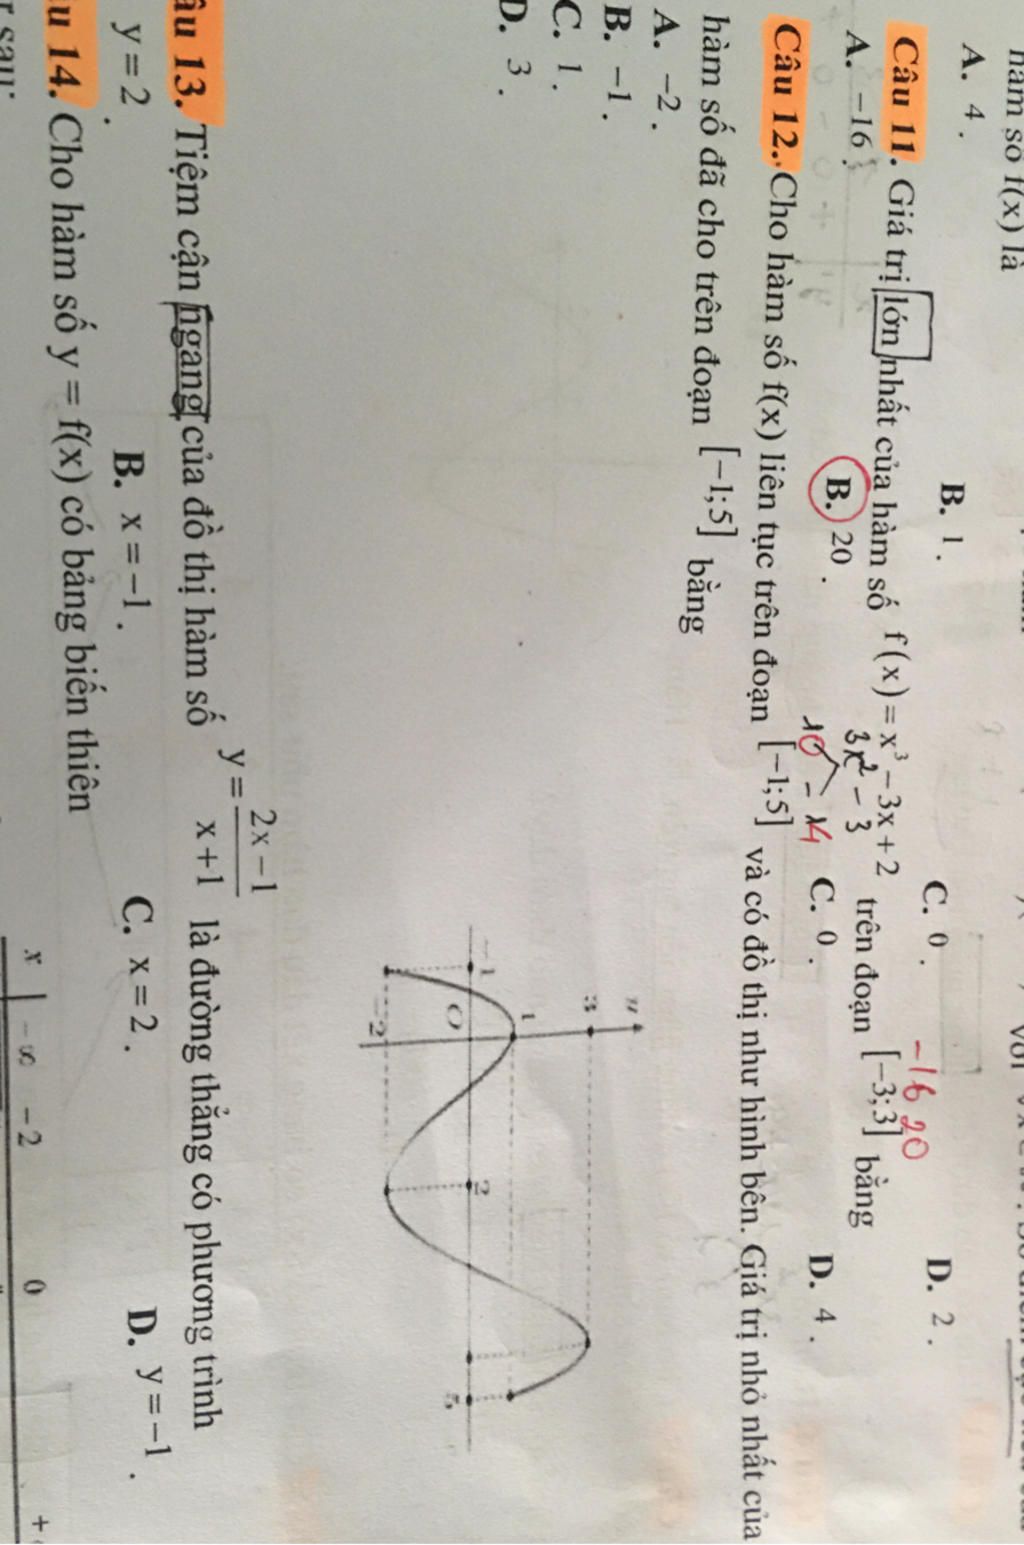 hàm số f(x) là
A. 4 .
B. 1 .
C. 0 .
D. 2 .
-16 20
Câu 11. Giá trị lớn nhất của hàm số f(x) = x³ − 3x + 2 trên đoạn [−3;3] bằng
3x² − 3
A. −16
B. 20 .
C. 0 .
D. 4 .
Câu 12. Cho hàm số f(x) liên tục trên đoạn [−1;5] và có đồ thị như hình bên. Giá trị nhỏ nhất của
hàm số đã cho trên đoạn [−1;5] bằng
A. −2 .
B. −1 .
C. 1 .
D. 3 .
y
3
1
−1
O
2
5
−2
Câu 13. Tiệm cận ngang của đồ thị hàm số y = (2x − 1)/(x + 1) là đường thẳng có phương trình
y = 2 .
B. x = −1 .
C. x = 2 .
D. y = −1 .
u 14. Cho hàm số y = f(x) có bảng biến thiên
r sau:
x −∞ −2 0 +